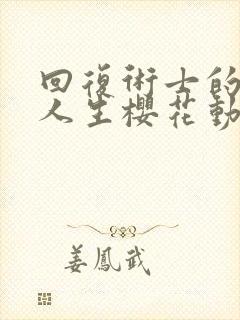 回復術士的
人生櫻花動
姜鳳武